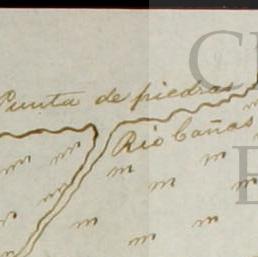 Punta de piedras
Rio Cañas